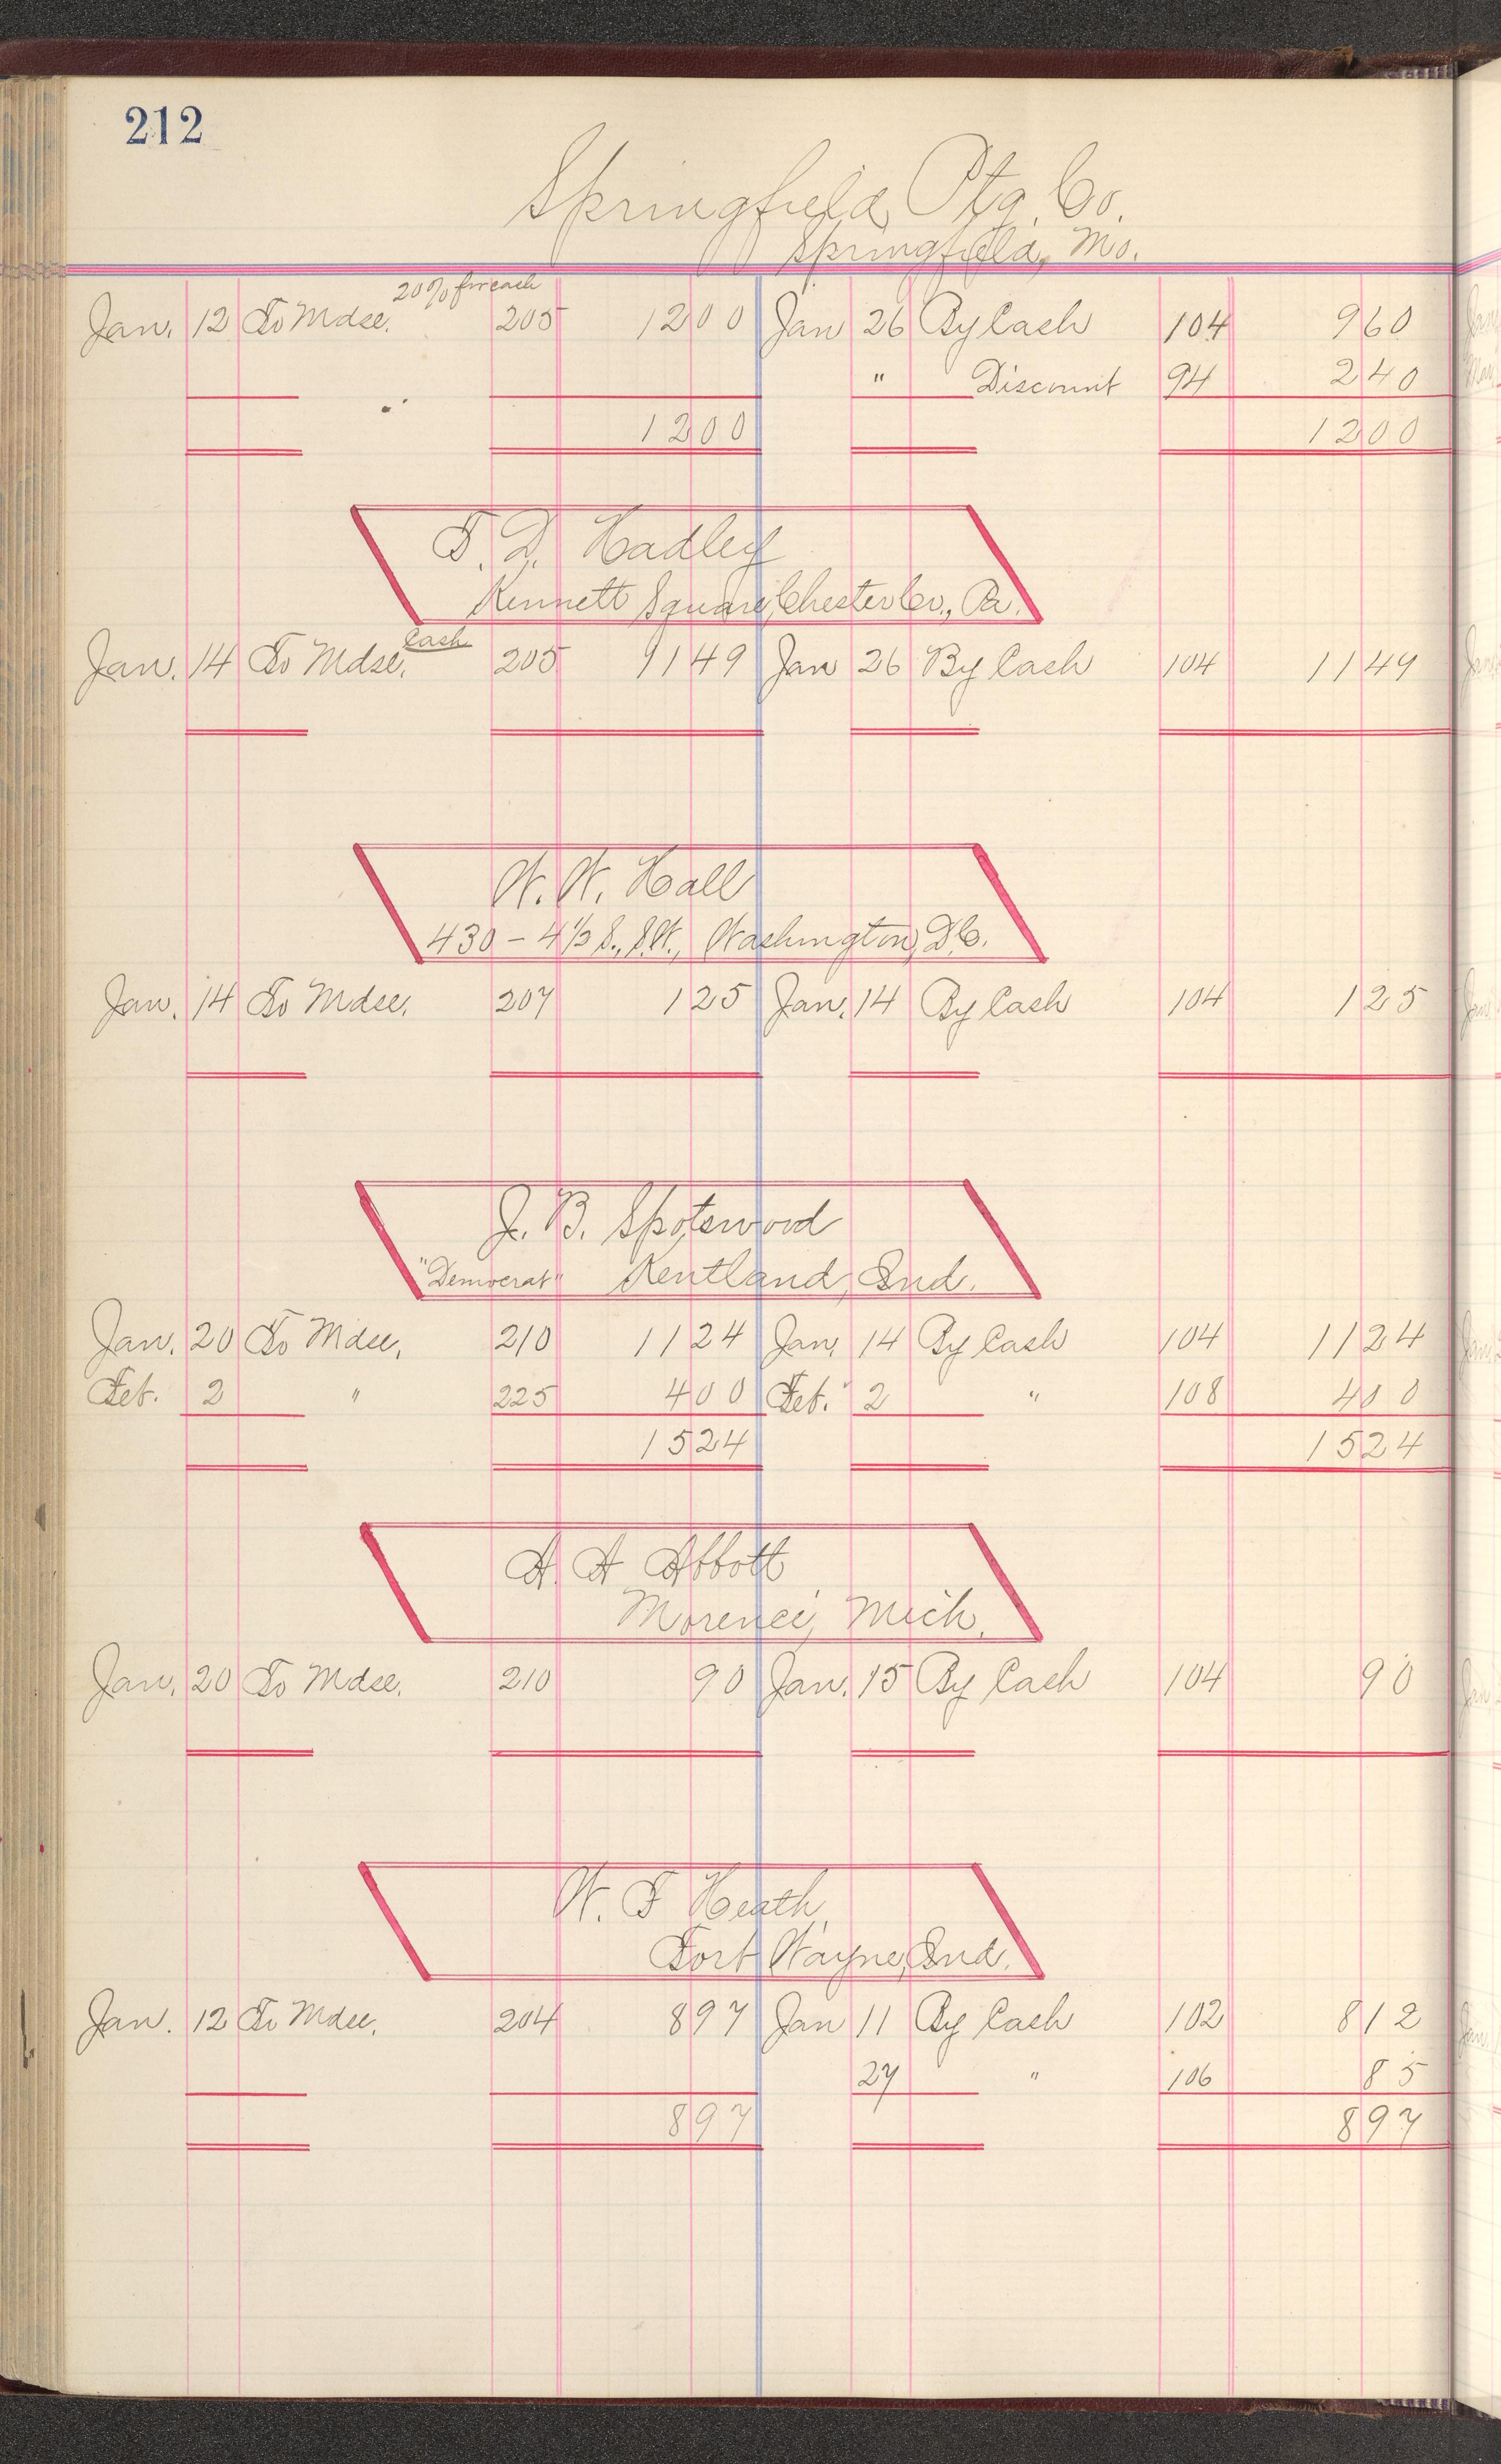 212
Springfield Ptg. Co.
Springfield, Mo.
20% for cash
Jan. 12 To Mdse. 205 12 00 Jan 26 By Cash 104 9 60
" Discount 94 2 40
12 00 12 00
T. D. Hadley
Kennett Square, Chester Co., Pa.
Cash
Jan. 14 To Mdse. 205 11 49 Jan 26 By Cash 104 11 49
W. W. Hall
430 - 4½ S., S.W., Washington, D.C.
Jan. 14 To Mdse. 207 1 25 Jan. 14 By Cash 104 1 25
J. B. Spotswood
"Democrat" Kentland, Ind.
Jan. 20 To Mdse. 210 11 24 Jan. 14 By Cash 104 11 24
Feb. 2 " 225 4 00 Feb. 2 " 108 4 00
15 24 15 24
A. A Abbott
Morenci, Mich.
Jan. 20 To Mdse. 210 90 Jan. 15 By Cash 104 90
W. F Heath,
Fort Wayne, Ind.
Jan. 12 To Mdse. 204 8 97 Jan 11 By Cash 102 8 12
27 " 106 85
8 97 8 97